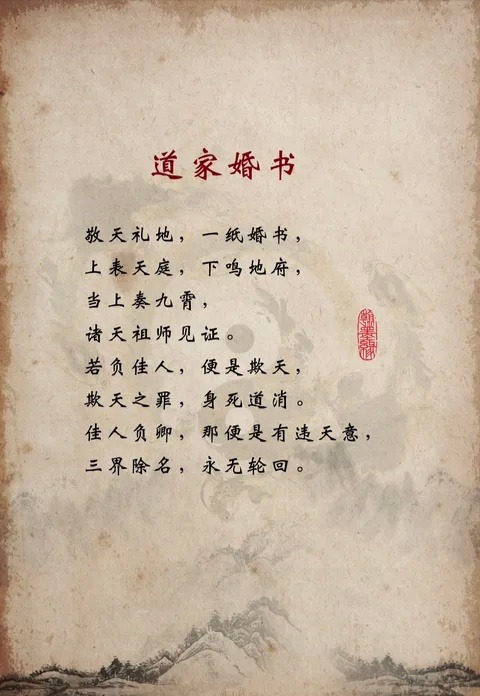 道家婚书
敬天礼地，一纸婚书，
上表天庭，下鸣地府，
当上奏九霄，
诸天祖师见证。
若负佳人，便是欺天，
欺天之罪，身死道消。
佳人负卿，那便是有违天意，
三界除名，永无轮回。
翰墨缘